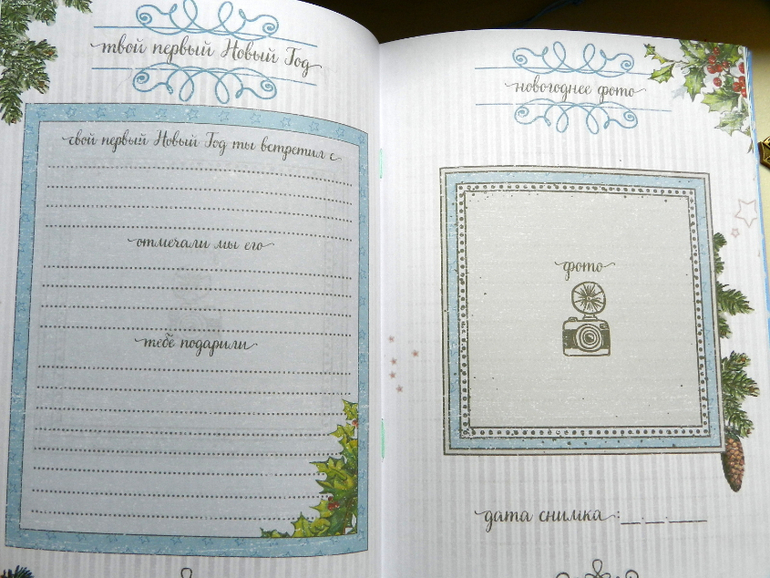 твой первый Новый Год
свой первый Новый Год ты встретил с
отмечали мы его
тебе подарили
новогоднее фото
фото
дата снимка :__.__.____